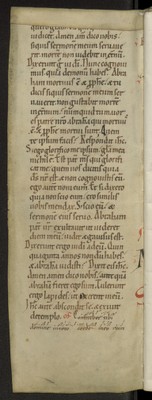 iudicet. Amen am dico uobis.
siquis sermonē meum seruaue
rit. mortē non uidebit in etnū.
Dixerunt g iudi. Nunc cognoui
mus quia demoniū habes. Abra
ham mortuus ē & pphe. & tu
dicis siquis sermonē meum ser
uauerit non gustabit mortē
in etnū. nunquid tu maior
es patre nrō abraha qui mortuus
ē & pphe mortui sunt. Quem
te ipsum facis? Respondit ihc.
Si ego glorifico me ipsū. gla mea
nichil ē. Est pat ms qui glorifi
cat me. quem uos dicitis quia
ds nr est. & non cognouistis eū.
ego autē noui eum. Et si dixero
quia non scio eum. ero similis
uobis mendax. Sed scio eū. &
sermonē eius seruo. Abraham
pat ur exultauit ut uideret
diem meū. uidit & gauisus est.
Dixerunt ergo iudi ad eum. Quin
quaginta annos nondū habes.
& abrahā uidisti? Dixit eis ihc.
Amen amen dico uobis. ante quā
abrahā fieret ego sum. Tulerunt
ergo lapides. ut iacerent in eum.
Ihc aut abscondit se. & exiuit
de templo.